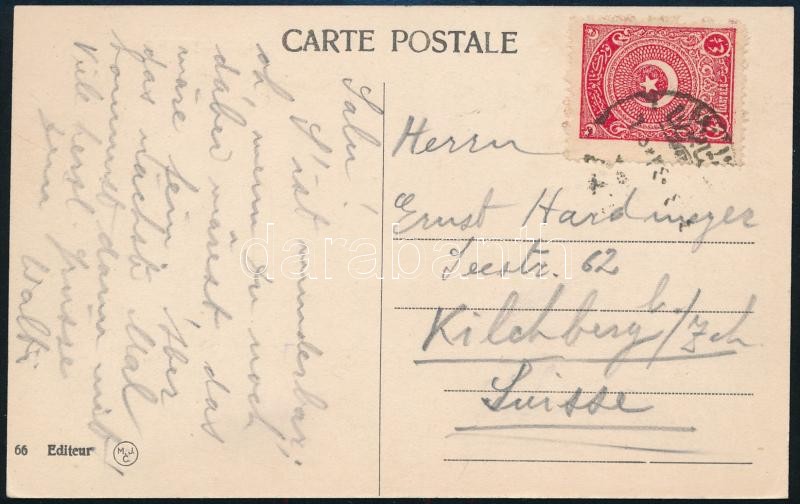 CARTE POSTALE
Salu!
S'ist wunderbar,
oh, wenn du noch
dabei wärest, das
wäre fein. Aber
das nächste Mal
kommst dann mit,
Viele herzl. Grüsse
dein Walti
Herrn
Ernst Hardmeyer
Seestr. 62
Kilchberg b/Zch
Suisse
66 Editeur
darabanth